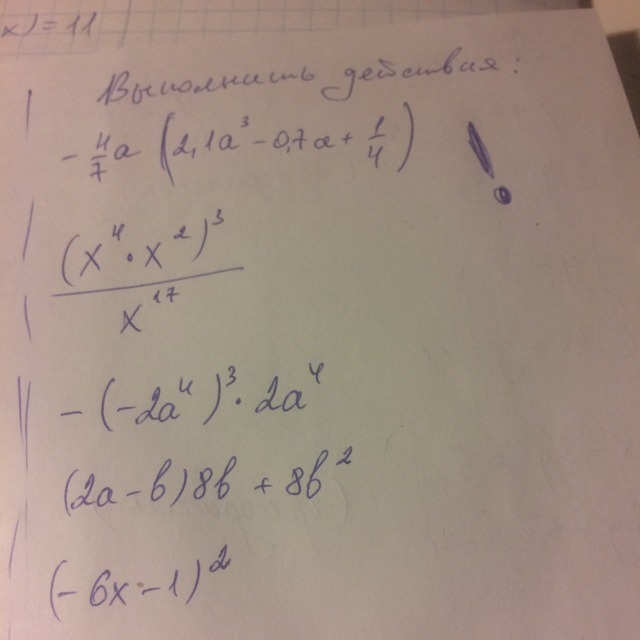 x) = 11
Выполнить действия:
-4/7a (2,1a³ - 0,7a + 1/4) !
(x⁴ · x²)³
x¹⁷
-(-2a⁴)³ · 2a⁴
(2a - b)8b + 8b²
(-6x - 1)²